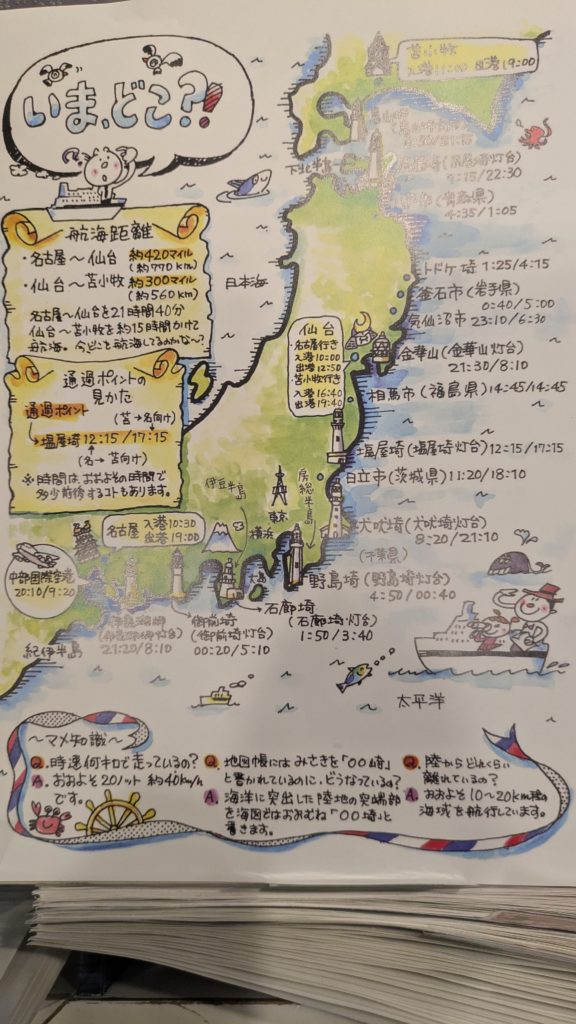 いま、どこ?!
航海距離
・名古屋〜仙台 約420マイル
(約770km)
・仙台〜苫小牧 約300マイル
(約560km)
名古屋〜仙台を21時間40分
仙台〜苫小牧を約15時間かけて
航海。今どこを航海してるのかな〜?
通過ポイントの
見かた
通過ポイント
(苫→名向け)
塩屋埼 12:15/17:15
(名→苫向け)
※時間は、おおよその時間で
多少前後するコトもあります。
日本海
苫小牧
入港11:00 出港19:00
下北半島
(尻屋埼灯台)
/22:30
(青森県)
4:35/1:05
トドケ埼 1:25/4:15
釜石市(岩手県)
0:40/5:00
気仙沼市 23:10/6:30
金華山(金華山灯台)
21:30/8:10
相馬市(福島県)14:45/14:45
塩屋埼(塩屋埼灯台)12:15/17:15
日立市(茨城県)11:20/18:10
犬吠埼(犬吠埼灯台)
8:20/21:10
(千葉県)
野島埼(野島埼灯台)
4:50/00:40
仙台
・名古屋行き
入港10:00
出港12:50
・苫小牧行き
入港16:40
出港19:40
伊豆半島
東京
横浜
房総半島
大島
名古屋 入港10:30
出港19:00
中部国際空港
20:10/9:20
21:20/8:10
御前埼
(御前埼灯台)
00:20/5:10
石廊埼
(石廊埼灯台)
1:50/3:40
紀伊半島
太平洋
〜マメ知識〜
Q. 時速何キロで走っているの?
A. おおよそ20ノット 約40km/h
です。
Q. 地図帳にはみさきを「〇〇崎」
と書かれているのに、どうなっているの?
A. 海洋に突出した陸地の突端部
を海図ではおおむね「〇〇埼」と
書きます。
Q. 陸からどんくらい
離れているの?
A. おおよそ10〜20km程の
海域を航行しています。